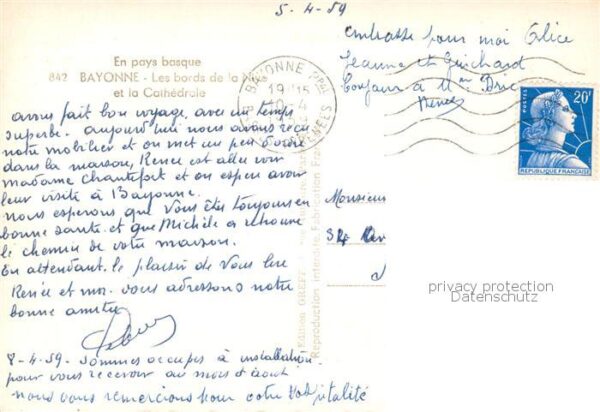 5-4-59
embrasse pour moi Alice
Jeanne et Guichard
Bonjour à Mme Dric
Renée
En pays basque
842 BAYONNE - Les bords de la Nive
et la Cathédrale
BAYONNE PPAL
19 H 15
10-4
1959
BSES PYRENEES
POSTES
20F
REPUBLIQUE FRANÇAISE
avons fait bon voyage, avec un temps
superbe. aujourd'hui nous avons reçu
notre mobilier et on met un peu d'ordre
dans la maison, Renée est allée voir
madame Chantefort et on espère avoir
leur visite à Bayonne.
nous esperons que Vous êtes toujours en
bonne santé et que Michèle a retrouvé
le chemin de votre maison.
En attendant le plaisir de Vous lire
Renée et moi vous adressons notre
bonne amitié
8-4-59. Sommes occupés à installation
pour vous recevoir au mois d'août
nous vous remercions pour votre hospitalité
Monsieur
34
Edition GREFF
Reproduction interdite. Fabrication Fra
privacy protection
Datenschutz